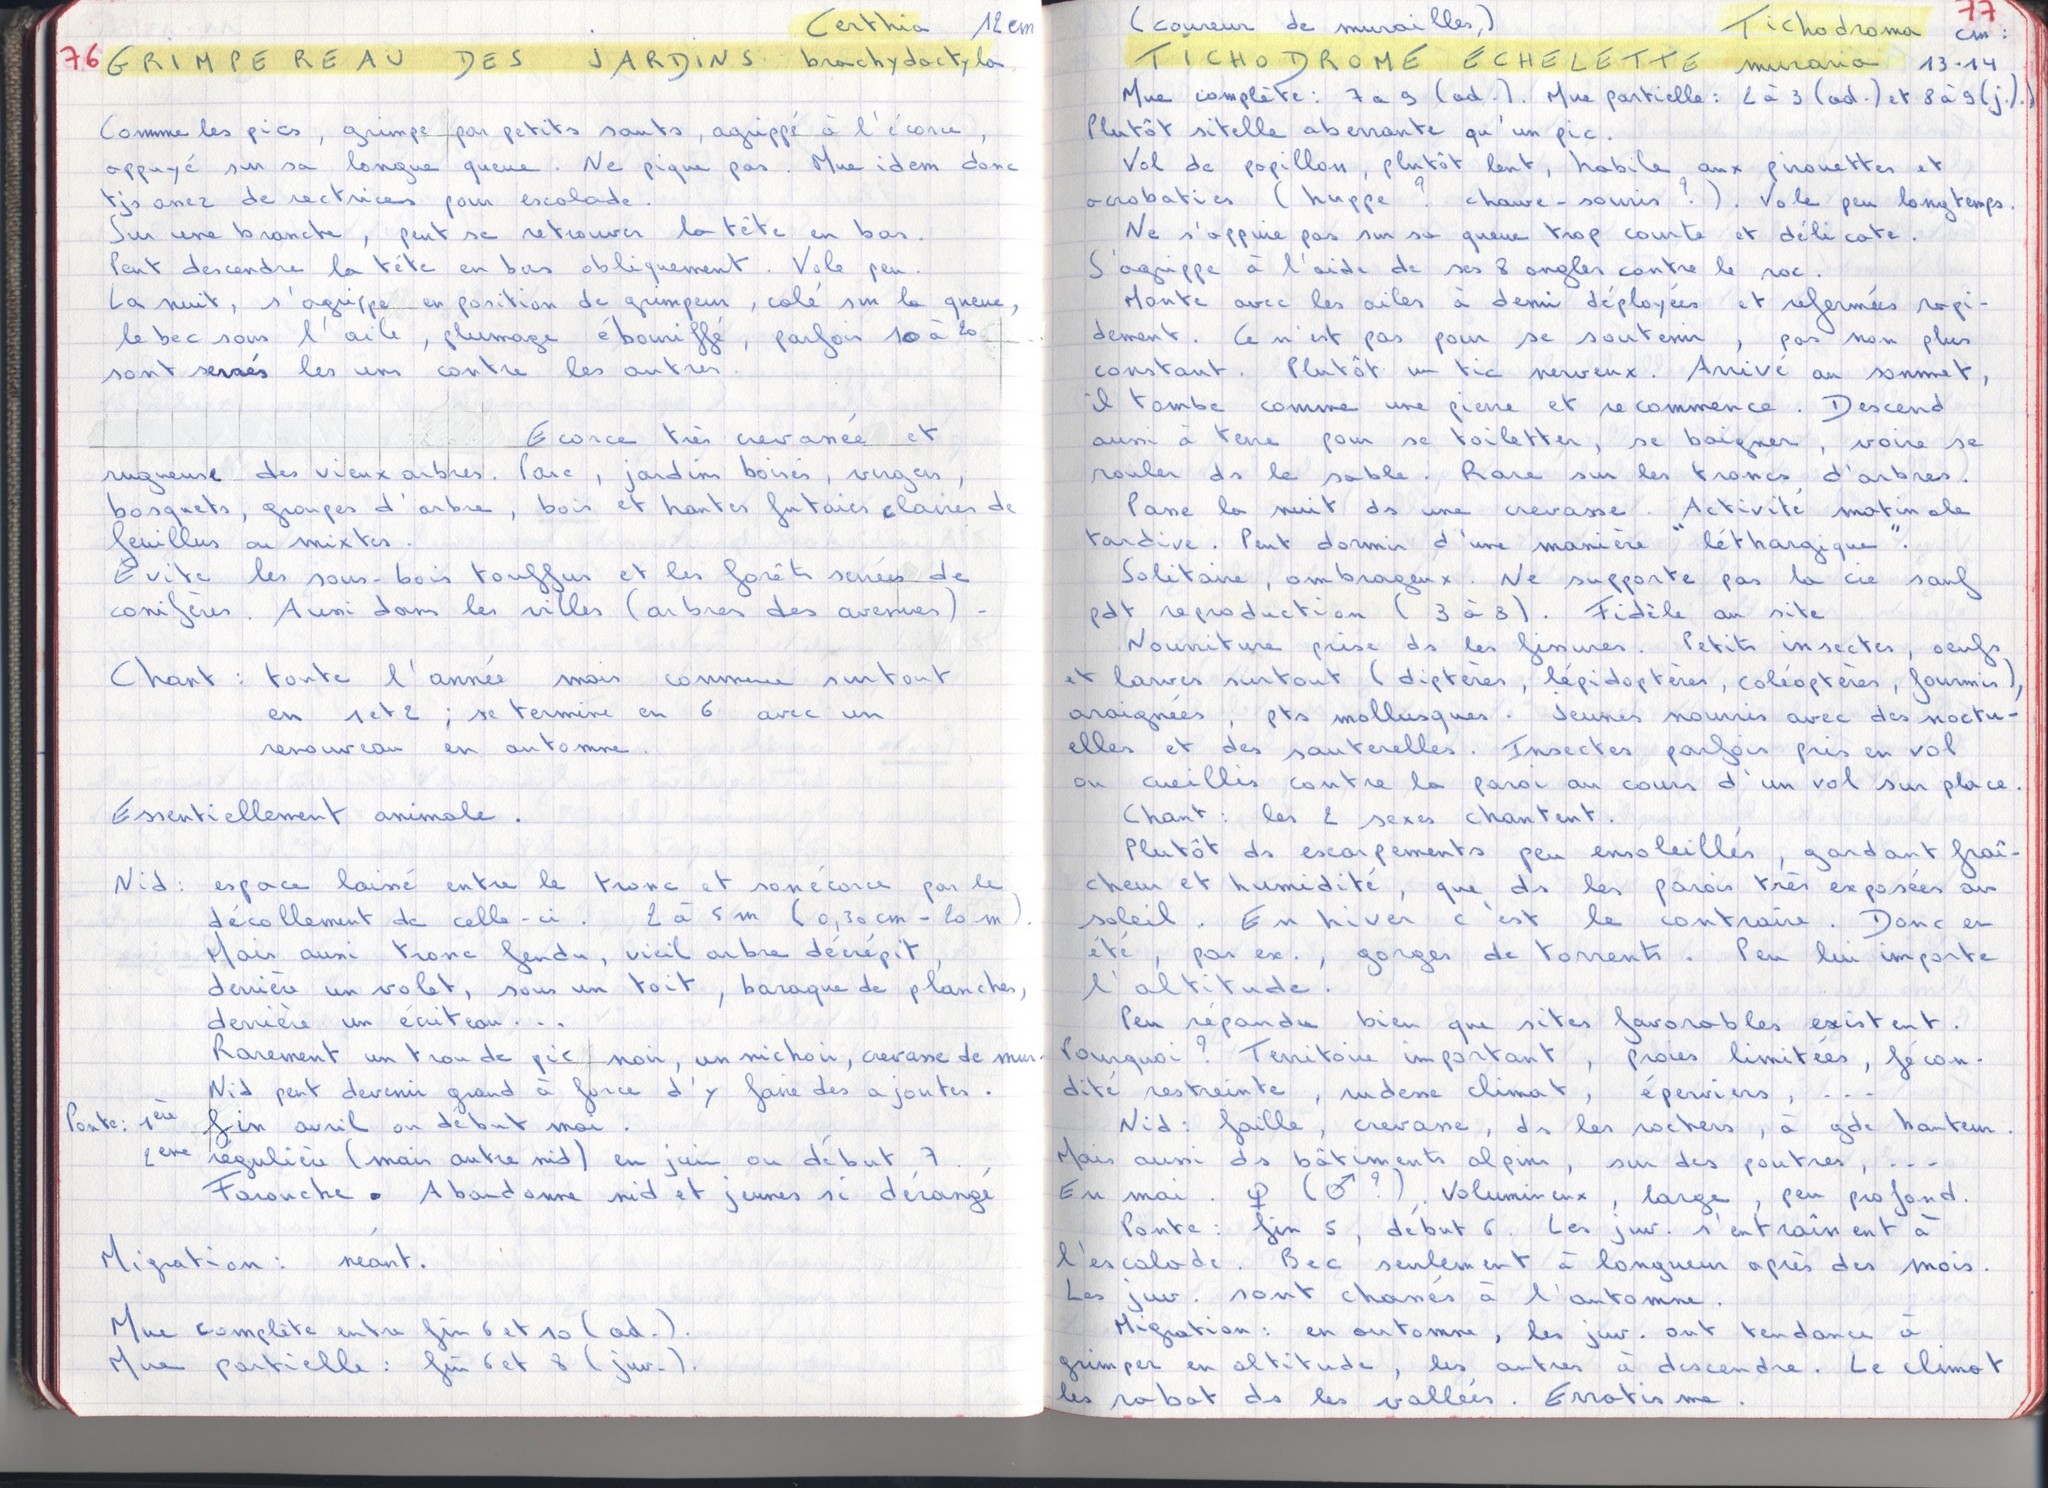 76
Certhia 12 cm
GRIMPEREAU DES JARDINS brachydactyla
Comme les pics, grimpe par petits sauts, agrippé à l'écorce,
appuyé sur sa longue queue. Ne pique pas. Mue idem donc
tjs assez de rectrices pour escalade.
Sur une branche, peut se retrouver la tête en bas.
Peut descendre la tête en bas obliquement. Vole peu.
La nuit, s'agrippe en position de grimpeur, calé sur la queue,
le bec sous l'aile, plumage ébouriffé, parfois 10 à 20
sont serrés les uns contre les autres.
Ecorce très crevassée et
rugueuse des vieux arbres. Parc, jardins boisés, vergers,
bosquets, groupes d'arbre, bois et hautes futaies claires de
feuillus ou mixtes.
Evite les sous-bois touffus et les forêts serrées de
conifères. Aussi dans les villes (arbres des avenues) -
Chant : toute l'année mais commence surtout
en 1 et 2 ; se termine en 6 avec un
renouveau en automne.
Essentiellement animale.
Nid : espace laissé entre le tronc et son écorce par le
décollement de celle-ci. 2 à 5 m (0,30 cm - 20 m).
Mais aussi tronc fendu, vieil arbre décrépit,
derrière un volet, sous un toit, baraque de planches,
derrière un écriteau...
Rarement un trou de pic noir, un nichoir, crevasse de mur-
Nid peut devenir grand à force d'y faire des ajoutes.
Ponte : 1ère fin avril ou début mai.
2ème régulière (mais autre nid) en juin ou début 7.
Farouche. Abandonne nid et jeunes si dérangé
Migration : néant.
Mue complète entre fin 6 et 10 (ad.).
Mue partielle : fin 6 et 8 (juv.).
77
(coureur de murailles,) Tichodroma cm :
TICHODROME ECHELETTE muraria 13-14
Mue complète : 7 à 9 (ad.). Mue partielle : 2 à 3 (ad.) et 8 à 9 (j.).
Plutôt sitelle aberrante qu'un pic.
Vol de papillon, plutôt lent, habile aux pirouettes et
acrobaties (huppe ? chauve-souris ?). Vole peu longtemps.
Ne s'appuie pas sur sa queue trop courte et délicate.
S'agrippe à l'aide de ses 8 ongles contre le roc.
Monte avec les ailes à demi déployées et refermées rapi-
dement. Ce n'est pas pour se soutenir, pas non plus
constant. Plutôt un tic nerveux. Arrivé au sommet,
il tombe comme une pierre et recommence. Descend
aussi à terre pour se toiletter, se baigner, voire se
rouler ds le sable. Rare sur les troncs d'arbres.
Passe la nuit ds une crevasse. Activité matinale
tardive. Peut dormir d'une manière "léthargique".
Solitaire, ombrageux. Ne supporte pas la cie sauf
pdt reproduction (3 à 8). Fidèle au site
Nourriture prise ds les fissures. Petits insectes, oeufs
et larves surtout (diptères, lépidoptères, coléoptères, fourmis),
araignées, pts mollusques. Jeunes nourris avec des noctu-
elles et des sauterelles. Insectes parfois pris en vol
ou cueillis contre la paroi au cours d'un vol sur place.
Chant : les 2 sexes chantent.
Plutôt ds escarpements peu ensoleillés, gardant fraî-
cheur et humidité, que ds les parois très exposées au
soleil. En hiver c'est le contraire. Donc en
été, par ex., gorges de torrents. Peu lui importe
l'altitude.
Peu répandu bien que sites favorables existent.
Pourquoi ? Territoire important, proies limitées, fécon-
dité restreinte, rudesse climat, éperviers, ...
Nid : faille, crevasse, ds les rochers, à gde hauteur.
Mais aussi ds bâtiments alpins, sur des poutres, ...
En mai. ♀ (♂ ?). Volumineux, large, peu profond.
Ponte : fin 5, début 6. Les juv. s'entraînent à
l'escalade. Bec seulement à longueur après des mois.
Les juv. sont chassés à l'automne.
Migration : en automne, les juv. ont tendance à
grimper en altitude, les autres à descendre. Le climat
les rabat ds les vallées. Erratisme.